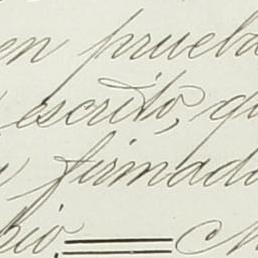 en prueba
escrito, qu
firmado
bio.